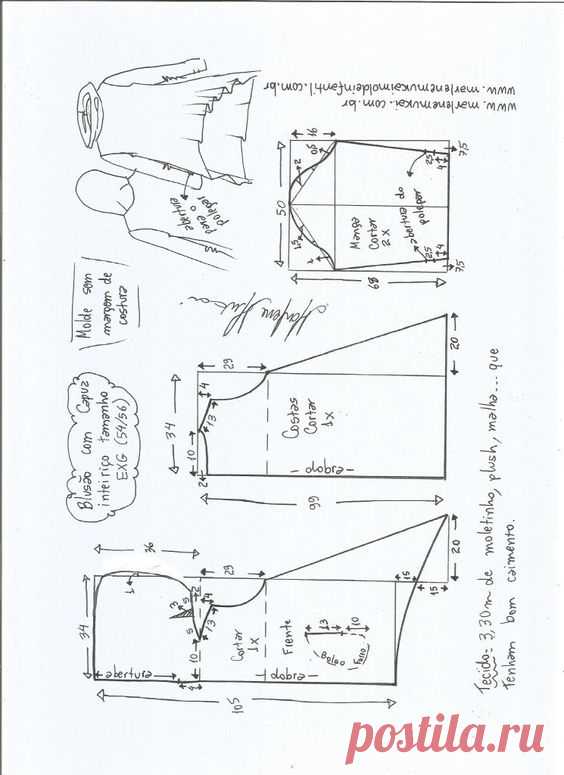 Blusão com Capuz
inteiriço tamanho
EXG (54/56)
Molde sem
margem de
costura
abertura
para o
polegar
www.marlenemukai.com.br
www.marlenemukaimoldeinfantil.com.br
34
36
1
abertura
4
3
5
5
2
4
13
10
29
Cortar
1X
Frente
dobra
13
10
Bolso
Forro
105
15
15
20
34
4
13
10
2
29
Costas
Cortar
1X
dobra
66
20
16
50
2
1,5
1
Manga
Cortar
2X
abertura do
polegar
68
2,5
4
7,5
2,5
4
7,5
Tecido = 3,30m de moletinho, plush, malha... que
Tenham bom caimento.
postila.ru